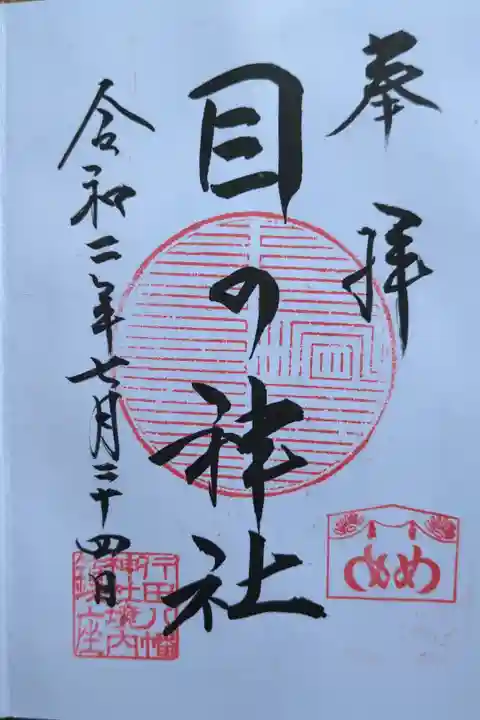 奉拝
目の神社
令和二年七月二十四日
行田八幡
神社境内
鎮座
め